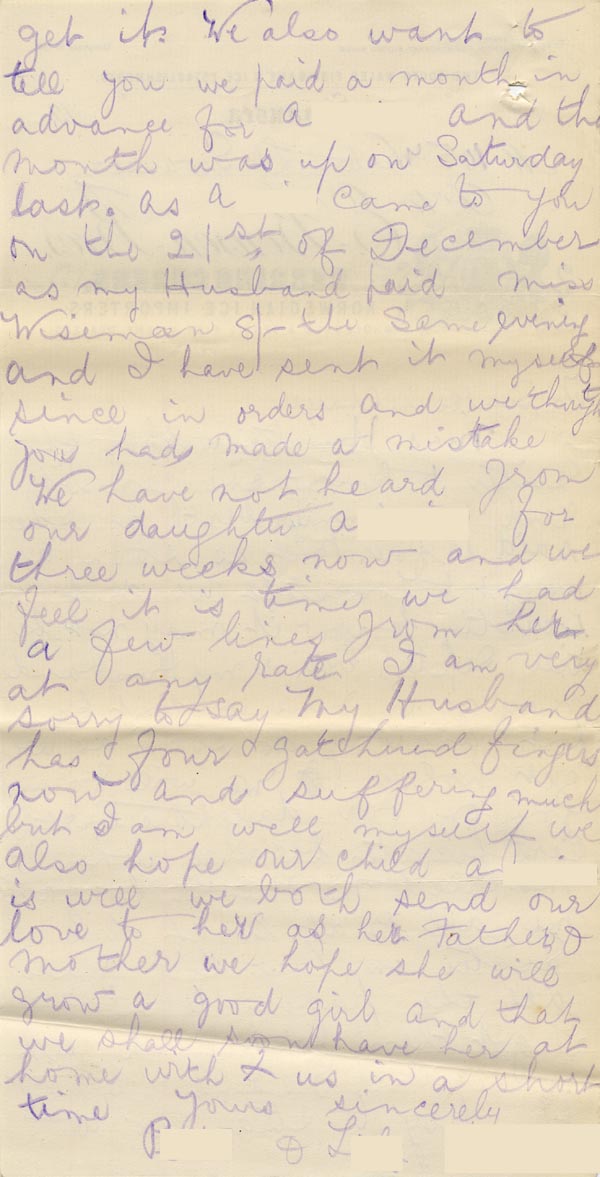 get it. We also want to
tell you we paid a month in
advance for A and the
month was up on Saturday
last. as A came to you
on the 21st of December
as my Husband paid Miss
Wiseman 8/- the Same evening
and I have sent it myself
since in orders and we thought
you had made a mistake
We have not heard from
our daughter A for
three weeks now and we
feel it is time we had
a few lines from her
at any rate I am very
sorry to say My Husband
has four gathered fingers
now and suffering much
but I am well myself we
also hope our child A
is well we both send our
love to her as her Father &
Mother we hope she will
grow a good girl and that
we shall soon have her at
home with us in a short
time Yours sincerely
P & L